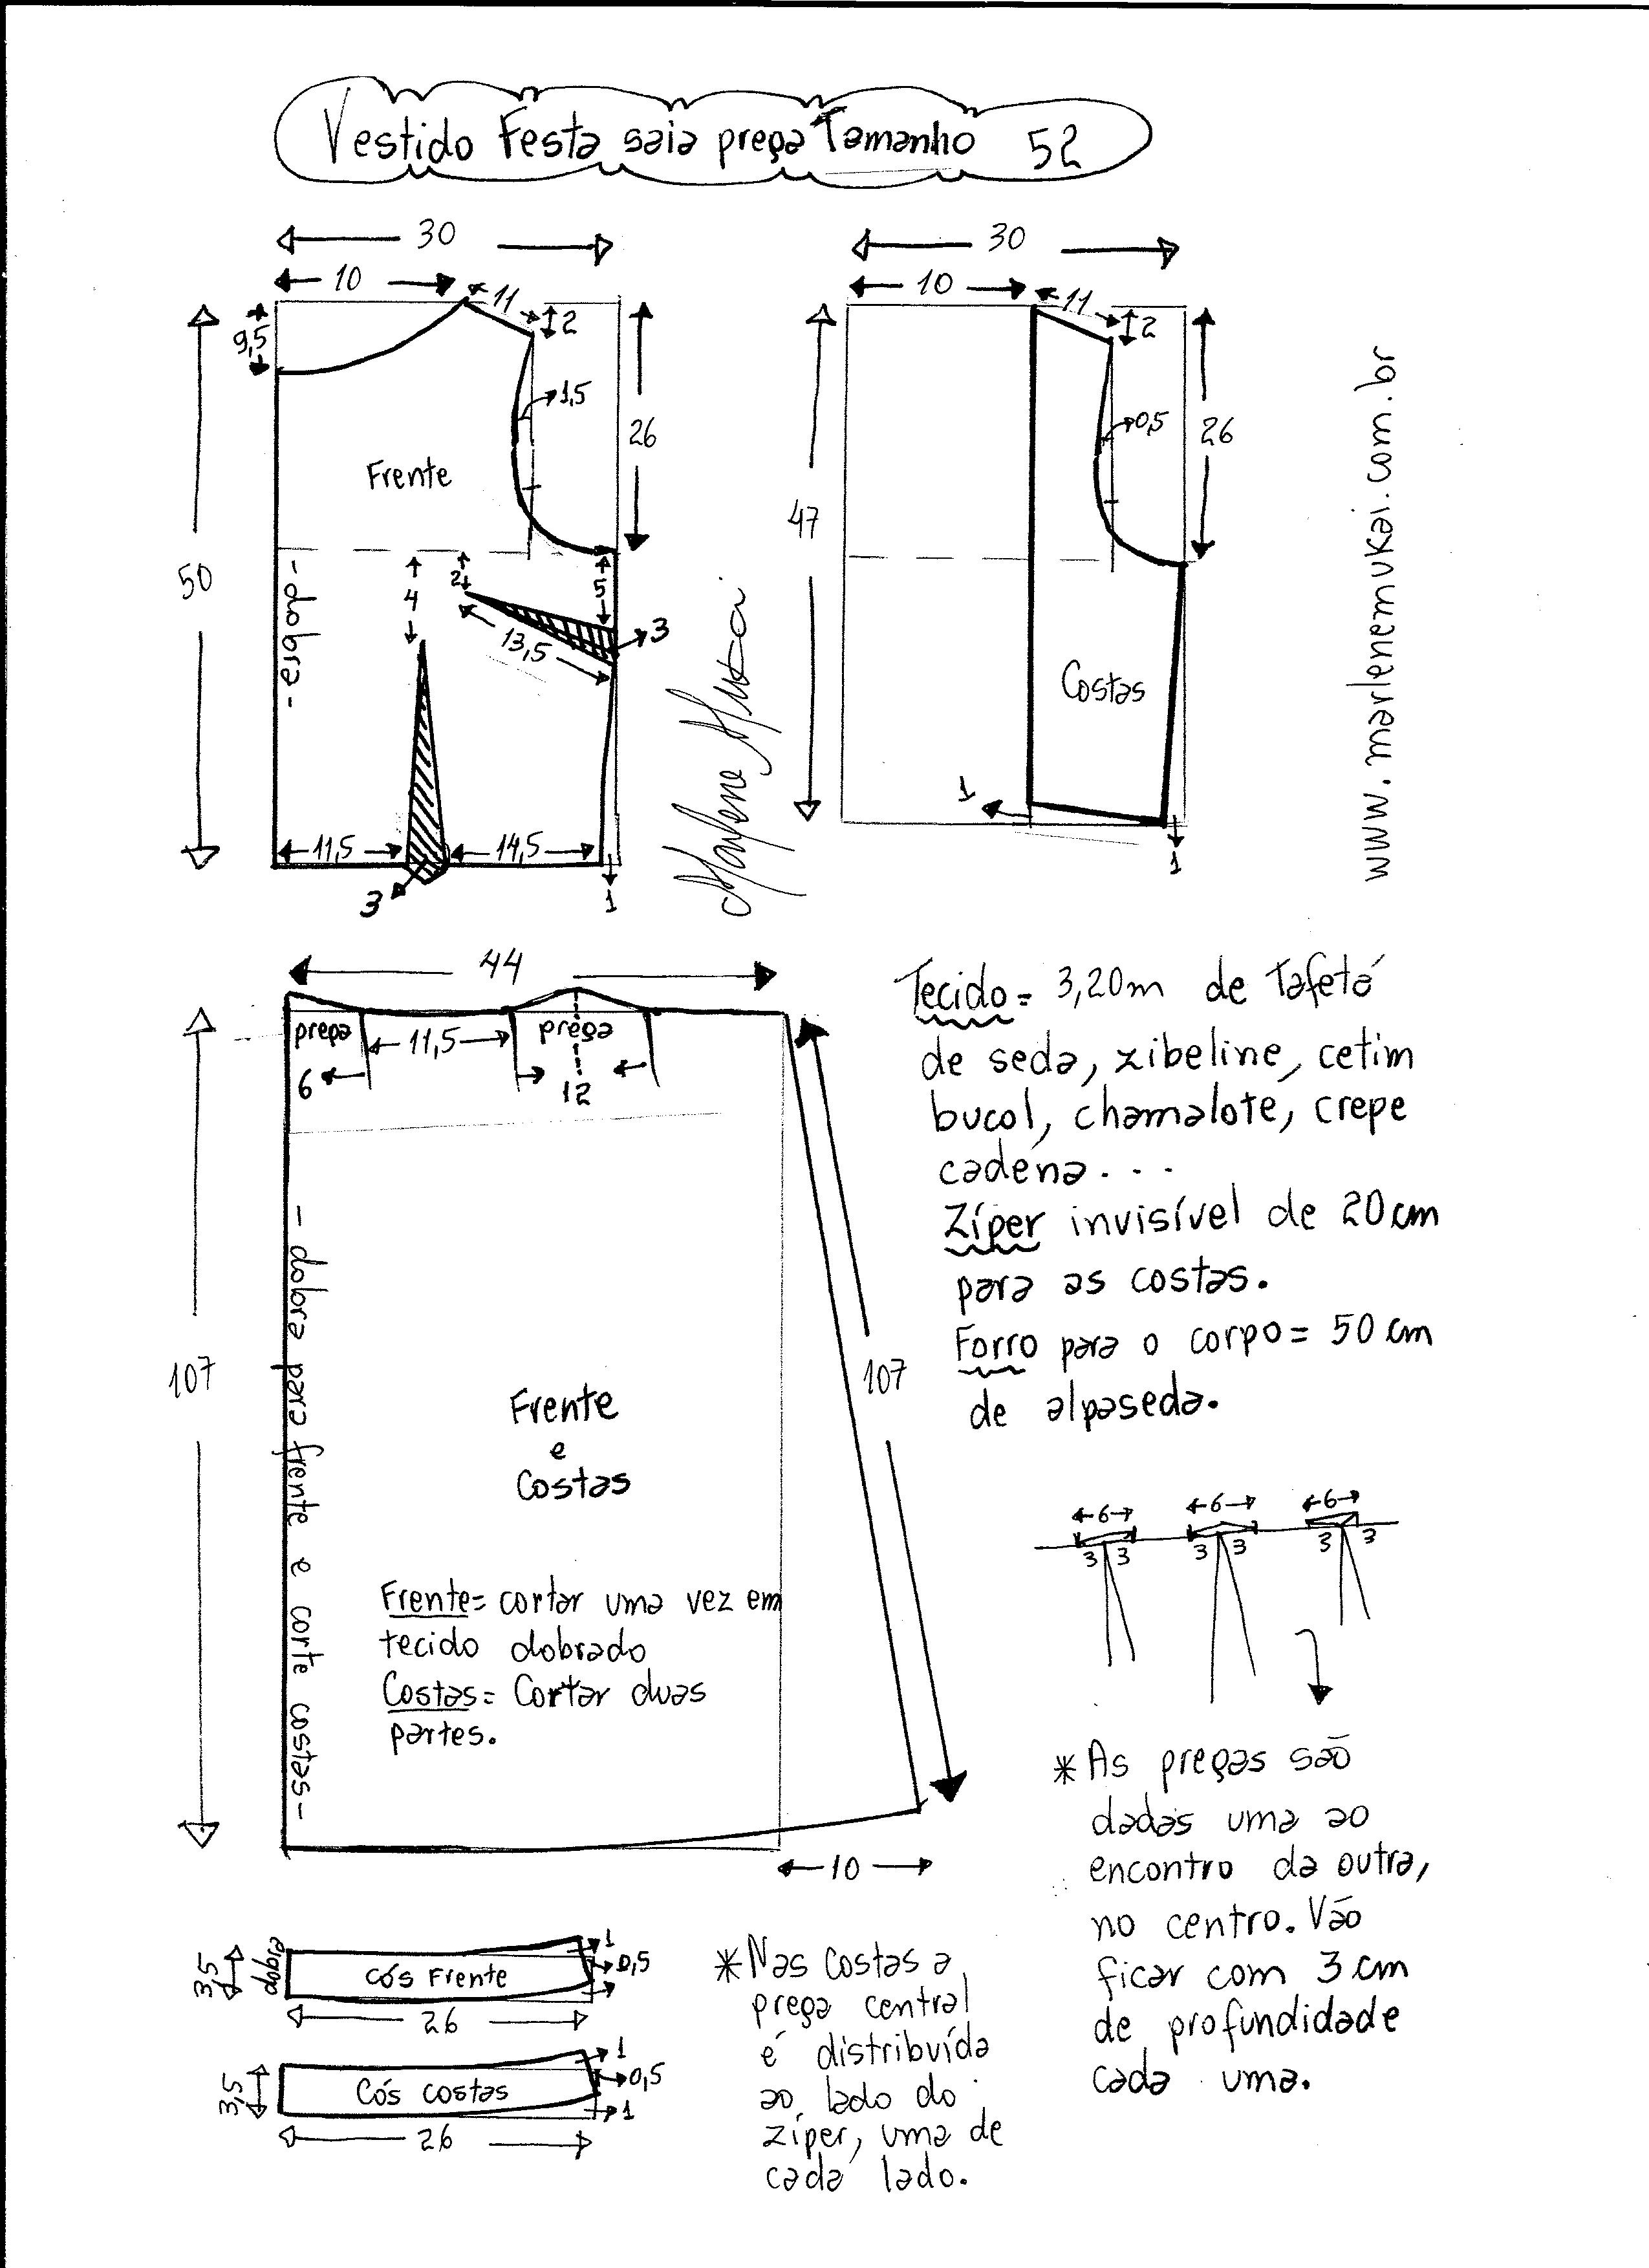 Vestido Festa saia prega Tamanho 52
30
10
11
2
9,5
1,5
26
Frente
50
- dobra -
4
2
5
3
13,5
11,5
14,5
3
1
30
10
11
2
0,5
26
47
Costas
1
1
Marlene Mukai
www.marlenemukai.com.br
44
prega
11,5
prega
6
12
107
107
- dobra para frente e corte costas -
Frente
e
Costas
Frente = cortar uma vez em
tecido dobrado
Costas = Cortar duas
partes.
10
Tecido = 3,20m de Tafetá
de seda, zibeline, cetim
bucol, chamalote, crepe
cadena...
Zíper invisível de 20cm
para as costas.
Forro para o corpo = 50 cm
de alpaseda.
6 6 6
3 3 3 3 3 3
* As pregas são
dadas uma ao
encontro da outra,
no centro. Vão
ficar com 3 cm
de profundidade
cada uma.
3,5
dobra
Cós Frente
1
0,5
26
3,5
Cós costas
1
0,5
1
26
* Nas costas a
prega central
é distribuída
ao lado do
zíper, uma de
cada lado.